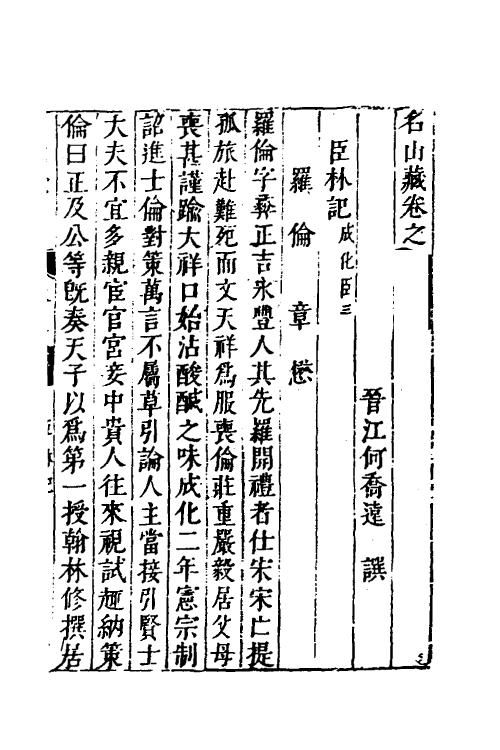 名山藏卷之
晉江何喬遠 譔
臣林記 成化臣三
羅倫 章懋
羅倫字彝正吉永豐人其先羅開禮者仕宋宋亡提
孤旅赴難死而文天祥爲服喪倫莊重嚴毅居父母
喪甚謹踰大祥口始沾酸醎之味成化二年憲宗制
詔進士倫對策萬言不屬草引論人主當接引賢士
大夫不宜多親宦官宮妾中貴人往來視試趣納策
倫曰正及公等旣奏天子以爲第一授翰林修撰居